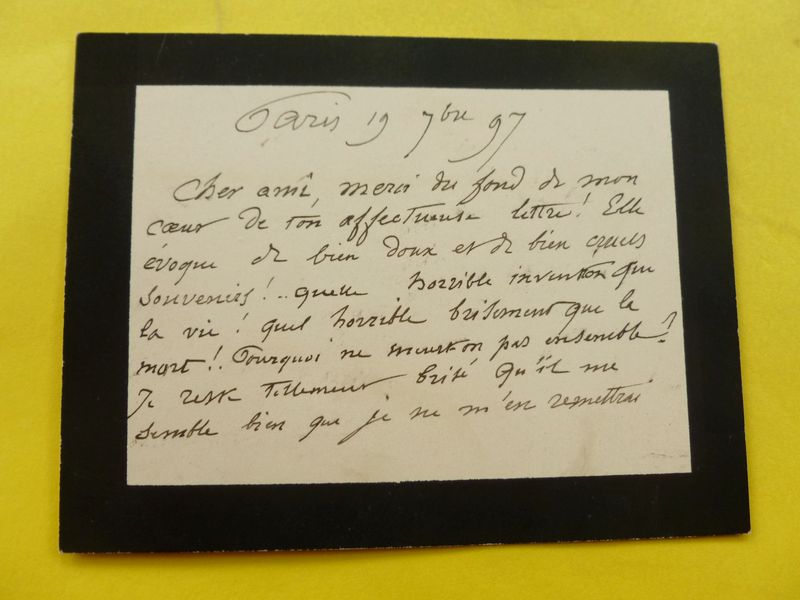 Paris 19 7bre 97
Cher ami, merci du fond de mon
cœur de ton affectueuse lettre! Elle
évoque de bien doux et de bien cruels
souvenirs!.. quelle horrible invention que
la vie! quel horrible brisement que la
mort!! Pourquoi ne meurt-on pas ensemble?
Je reste tellement brisé qu'il me
semble bien que je ne m'en remettrai